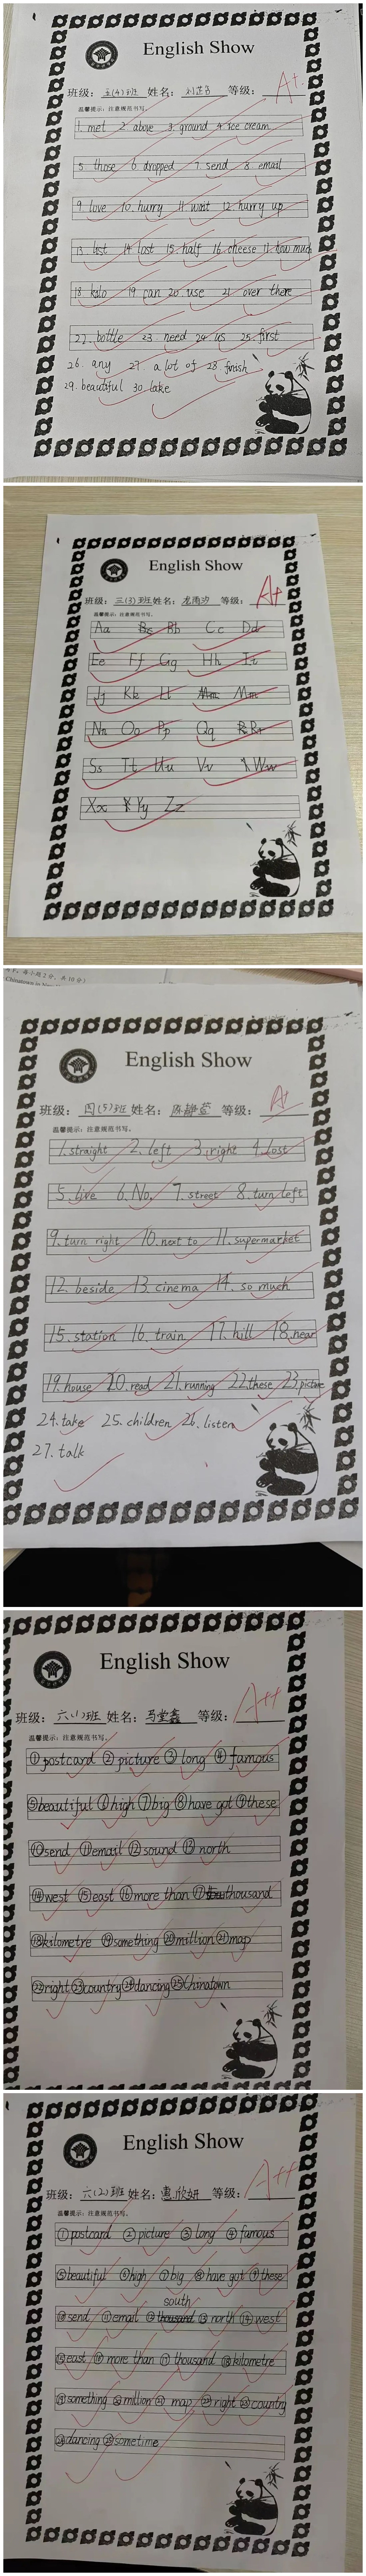 English Show
班级：五(4)班 姓名： 等级： A+
温馨提示：注意规范书写。
1. met 2. above 3. ground 4. ice cream
5. those 6. dropped 7. send 8. email
9. love 10. hurry 11. wait 12. hurry up
13. lost 14. lost 15. half 16. cheese 17. how much
18. kilo 19. can 20. use 21. over there
22. bottle 23. need 24. us 25. first
26. any 27. a lot of 28. finish
29. beautiful 30. take
English Show
班级：三(3)班 姓名： 等级： A+
温馨提示：注意规范书写。
Aa Bb Cc Dd
Ee Ff Gg Hh Ii
Jj Kk Ll Mm
Nn Oo Pp Qq Rr
Ss Tt Uu Vv Ww
Xx Yy Zz
每小题2分，共10分）
Chinatown in
English Show
班级：四(5)班 姓名： 等级： A+
温馨提示：注意规范书写。
1. straight 2. left 3. right 4. lost
5. live 6. No. 7. street 8. turn left
9. turn right 10. next to 11. supermarket
12. beside 13. cinema 14. so much
15. station 16. train 17. hill 18. near
19. house 20. read 21. running 22. these 23. picture
24. take 25. children 26. listen
27. talk
English Show
班级：六(1)班 姓名：马堂鑫 等级： A++
温馨提示：注意规范书写。
① postcard ② picture ③ long ④ famous
⑤ beautiful ⑥ high ⑦ big ⑧ have got ⑨ these
⑩ send ⑪ email ⑫ sound ⑬ north
⑭ west ⑮ east ⑯ more than ⑰ thousand
⑱ kilometre ⑲ something ⑳ million ㉑ map
㉒ right ㉓ country ㉔ dancing ㉕ Chinatown
English Show
班级：六(2)班 姓名：欣妍 等级： A++
温馨提示：注意规范书写。
① postcard ② picture ③ long ④ famous
⑤ beautiful ⑥ high ⑦ big ⑧ have got ⑨ these
south
⑩ send ⑪ email ⑫ thousand ⑬ north ⑭ west
⑮ east ⑯ more than ⑰ thousand ⑱ kilometre
⑲ something ⑳ million ㉑ map ㉒ right ㉓ country
㉔ dancing ㉕ sometime